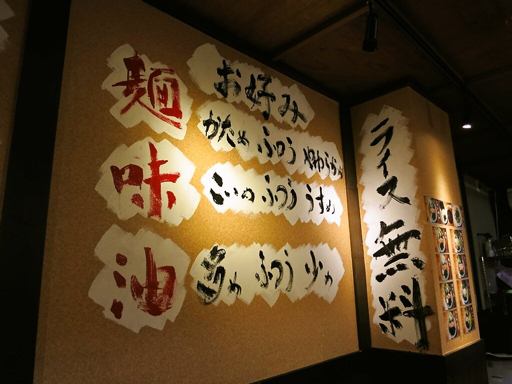 お好み
麺 かため ふつう やわらかめ
味 こいめ ふつう うすめ
油 多め ふつう 少め
ライス無料